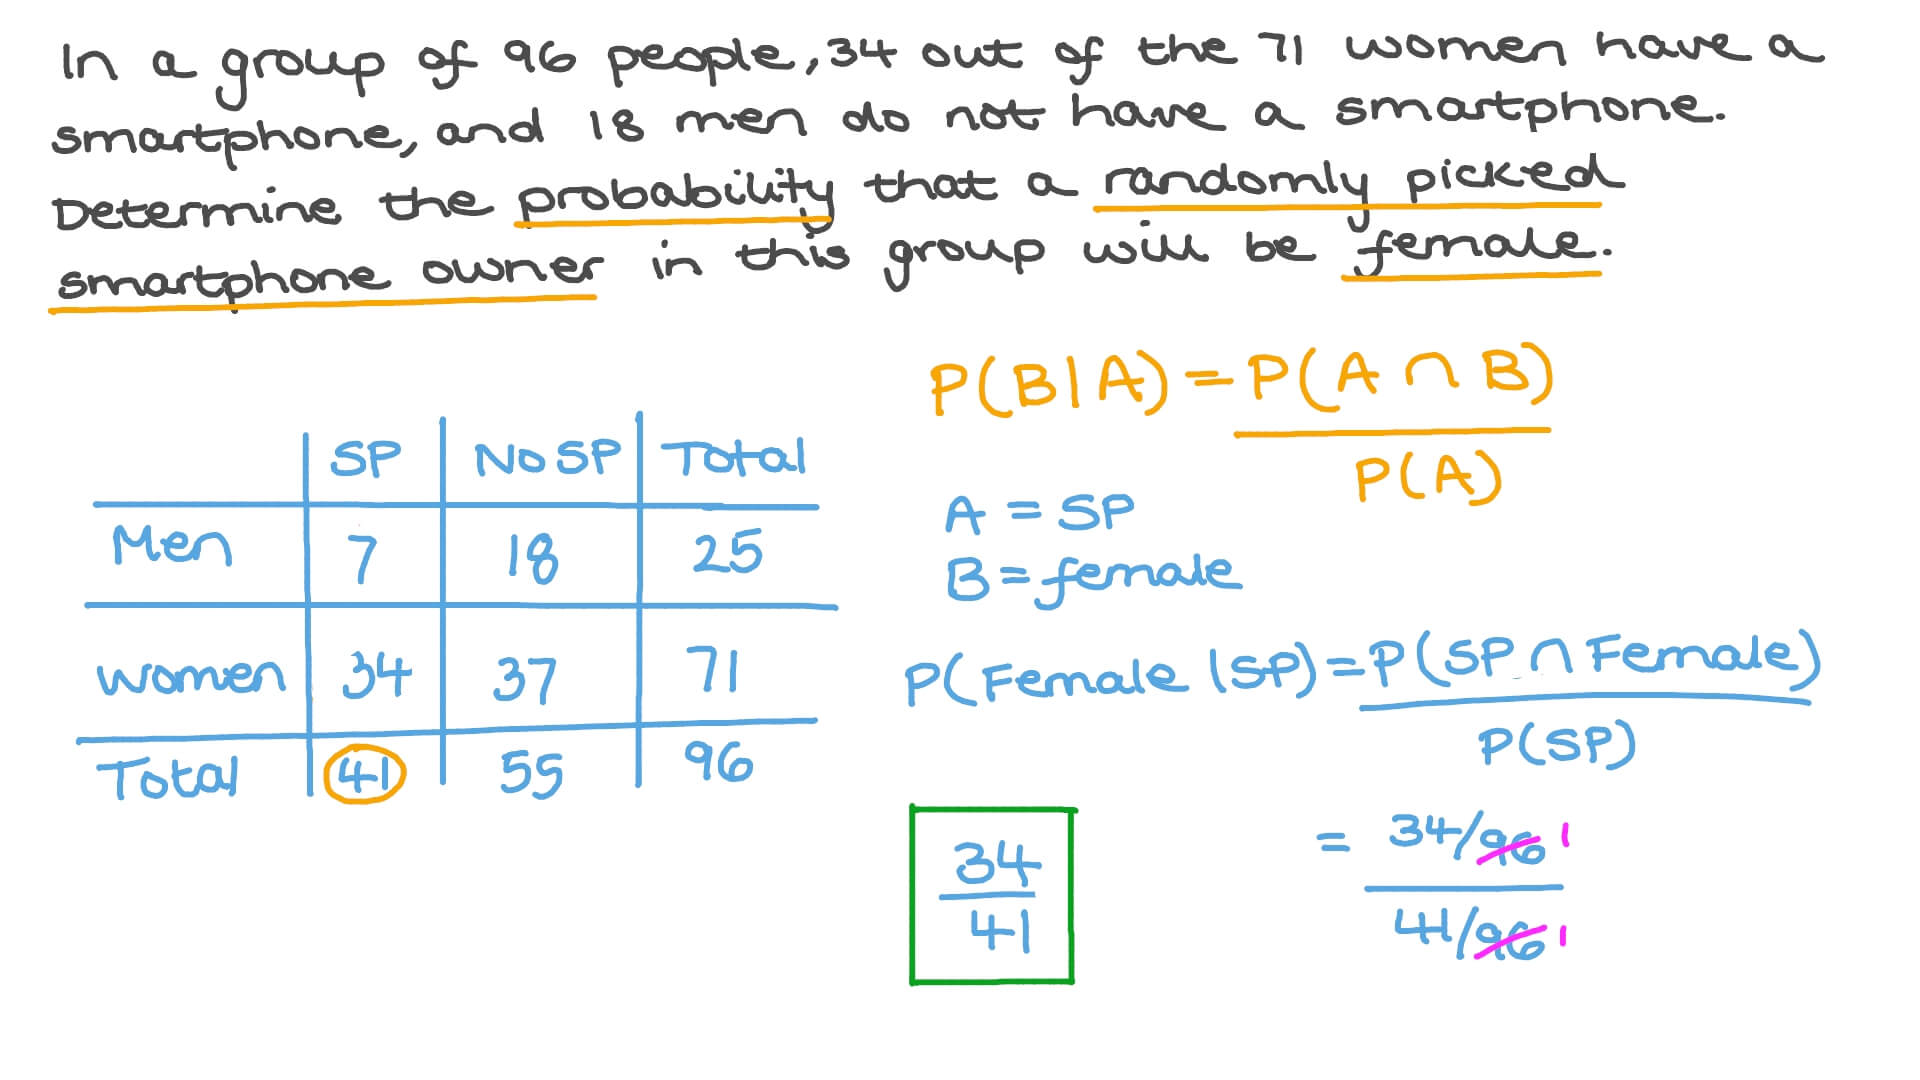 In a group of 96 people, 34 out of the 71 women have a
smartphone, and 18 men do not have a smartphone.
Determine the probability that a randomly picked
smartphone owner in this group will be female.
P(B|A) = P(A ∩ B)
P(A)
SP No SP Total
Men 7 18 25
women 34 37 71
Total 41 55 96
A = SP
B = female
P(Female | SP) = P(SP ∩ Female)
P(SP)
= 34/96 1
41/96 1
34
41